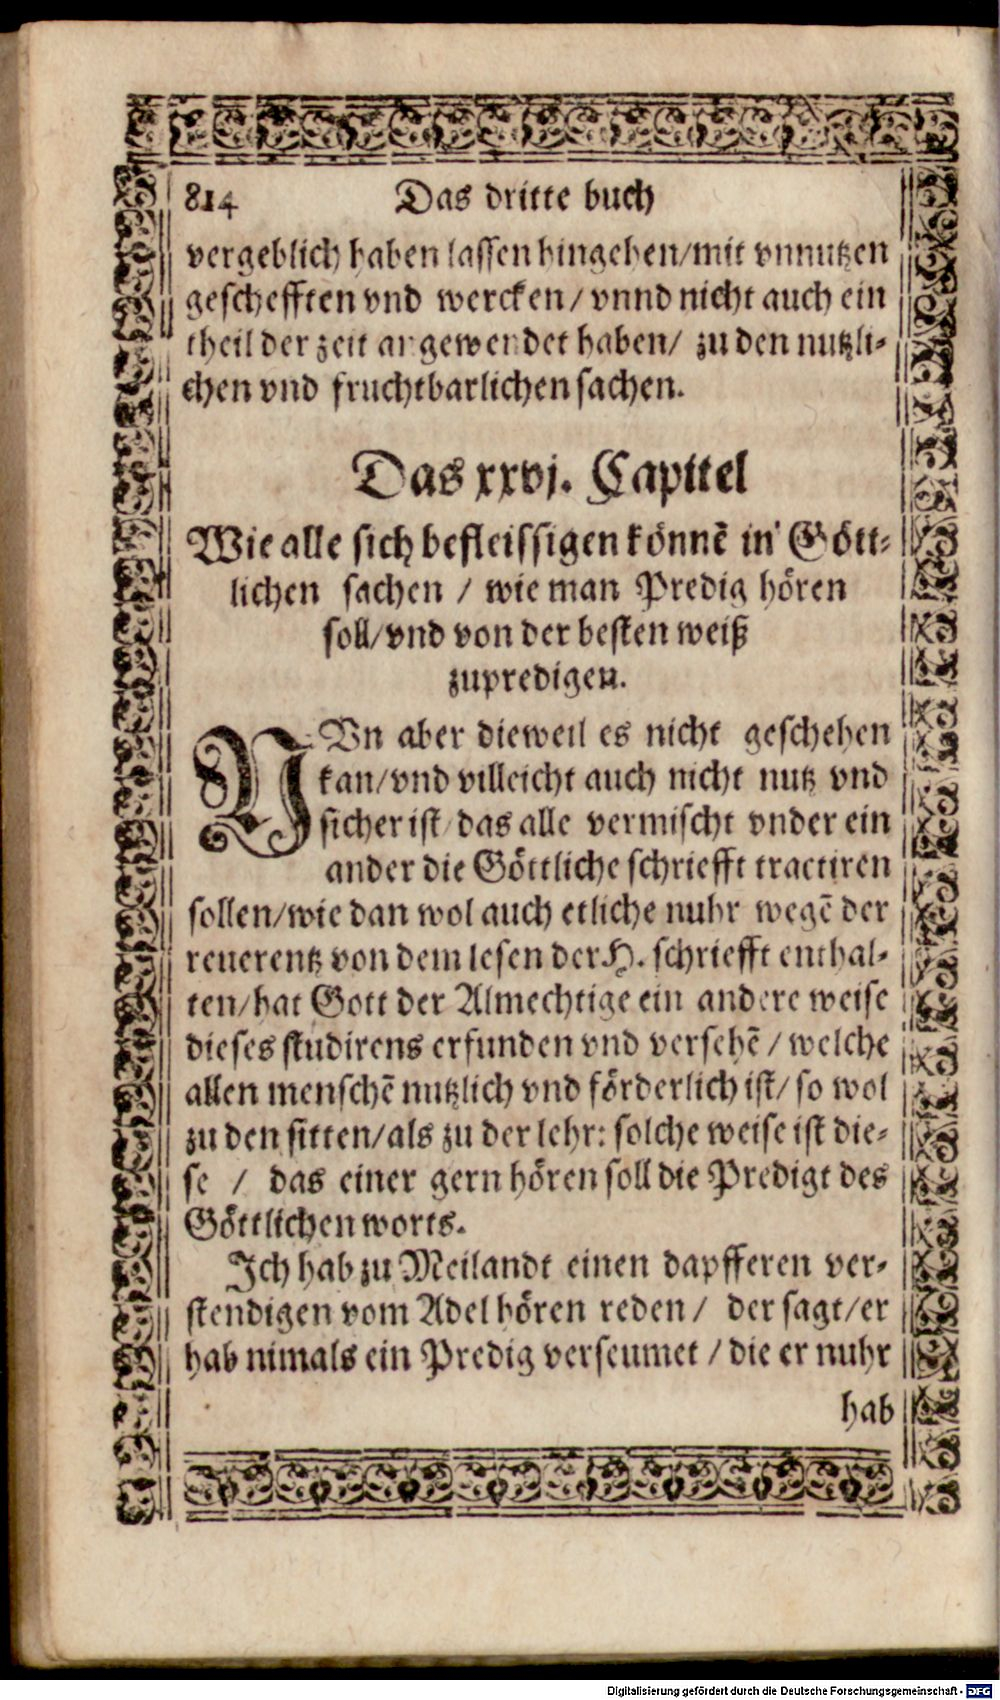 814 Das dritte buch
vergeblich haben lassen hingehen/mit vnnutzen
geschefften vnd wercken/ vnnd nicht auch ein
theil der zeit angewendet haben/ zu den nutzli-
chen vnd fruchtbarlichen sachen.
Das xxvj. Capittel
Wie alle sich befleissigen könnē in Gött-
lichen sachen / wie man Predig hören
soll/vnd von der besten weiß
zupredigen.
NVn aber dieweil es nicht geschehen
kan/vnd villeicht auch nicht nutz vnd
sicher ist/das alle vermischt vnder ein
ander die Göttliche schriefft tractiren
sollen/wie dan wol auch etliche nuhr wegē der
reuerentz von dem lesen der H. schriefft enthal-
ten/hat Gott der Almechtige ein andere weise
dieses studirens erfunden vnd versehē/welche
allen menschē nutzlich vnd förderlich ist/so wol
zu den sitten/als zu der lehr: solche weise ist die-
se / das einer gern hören soll die Predigt des
Göttlichen worts.
Ich hab zu Meilandt einen dapfferen ver-
stendigen vom Adel hören reden/ der sagt/er
hab nimals ein Predig verseumet/die er nuhr
hab
Digitalisierung gefördert durch die Deutsche Forschungsgemeinschaft - DFG